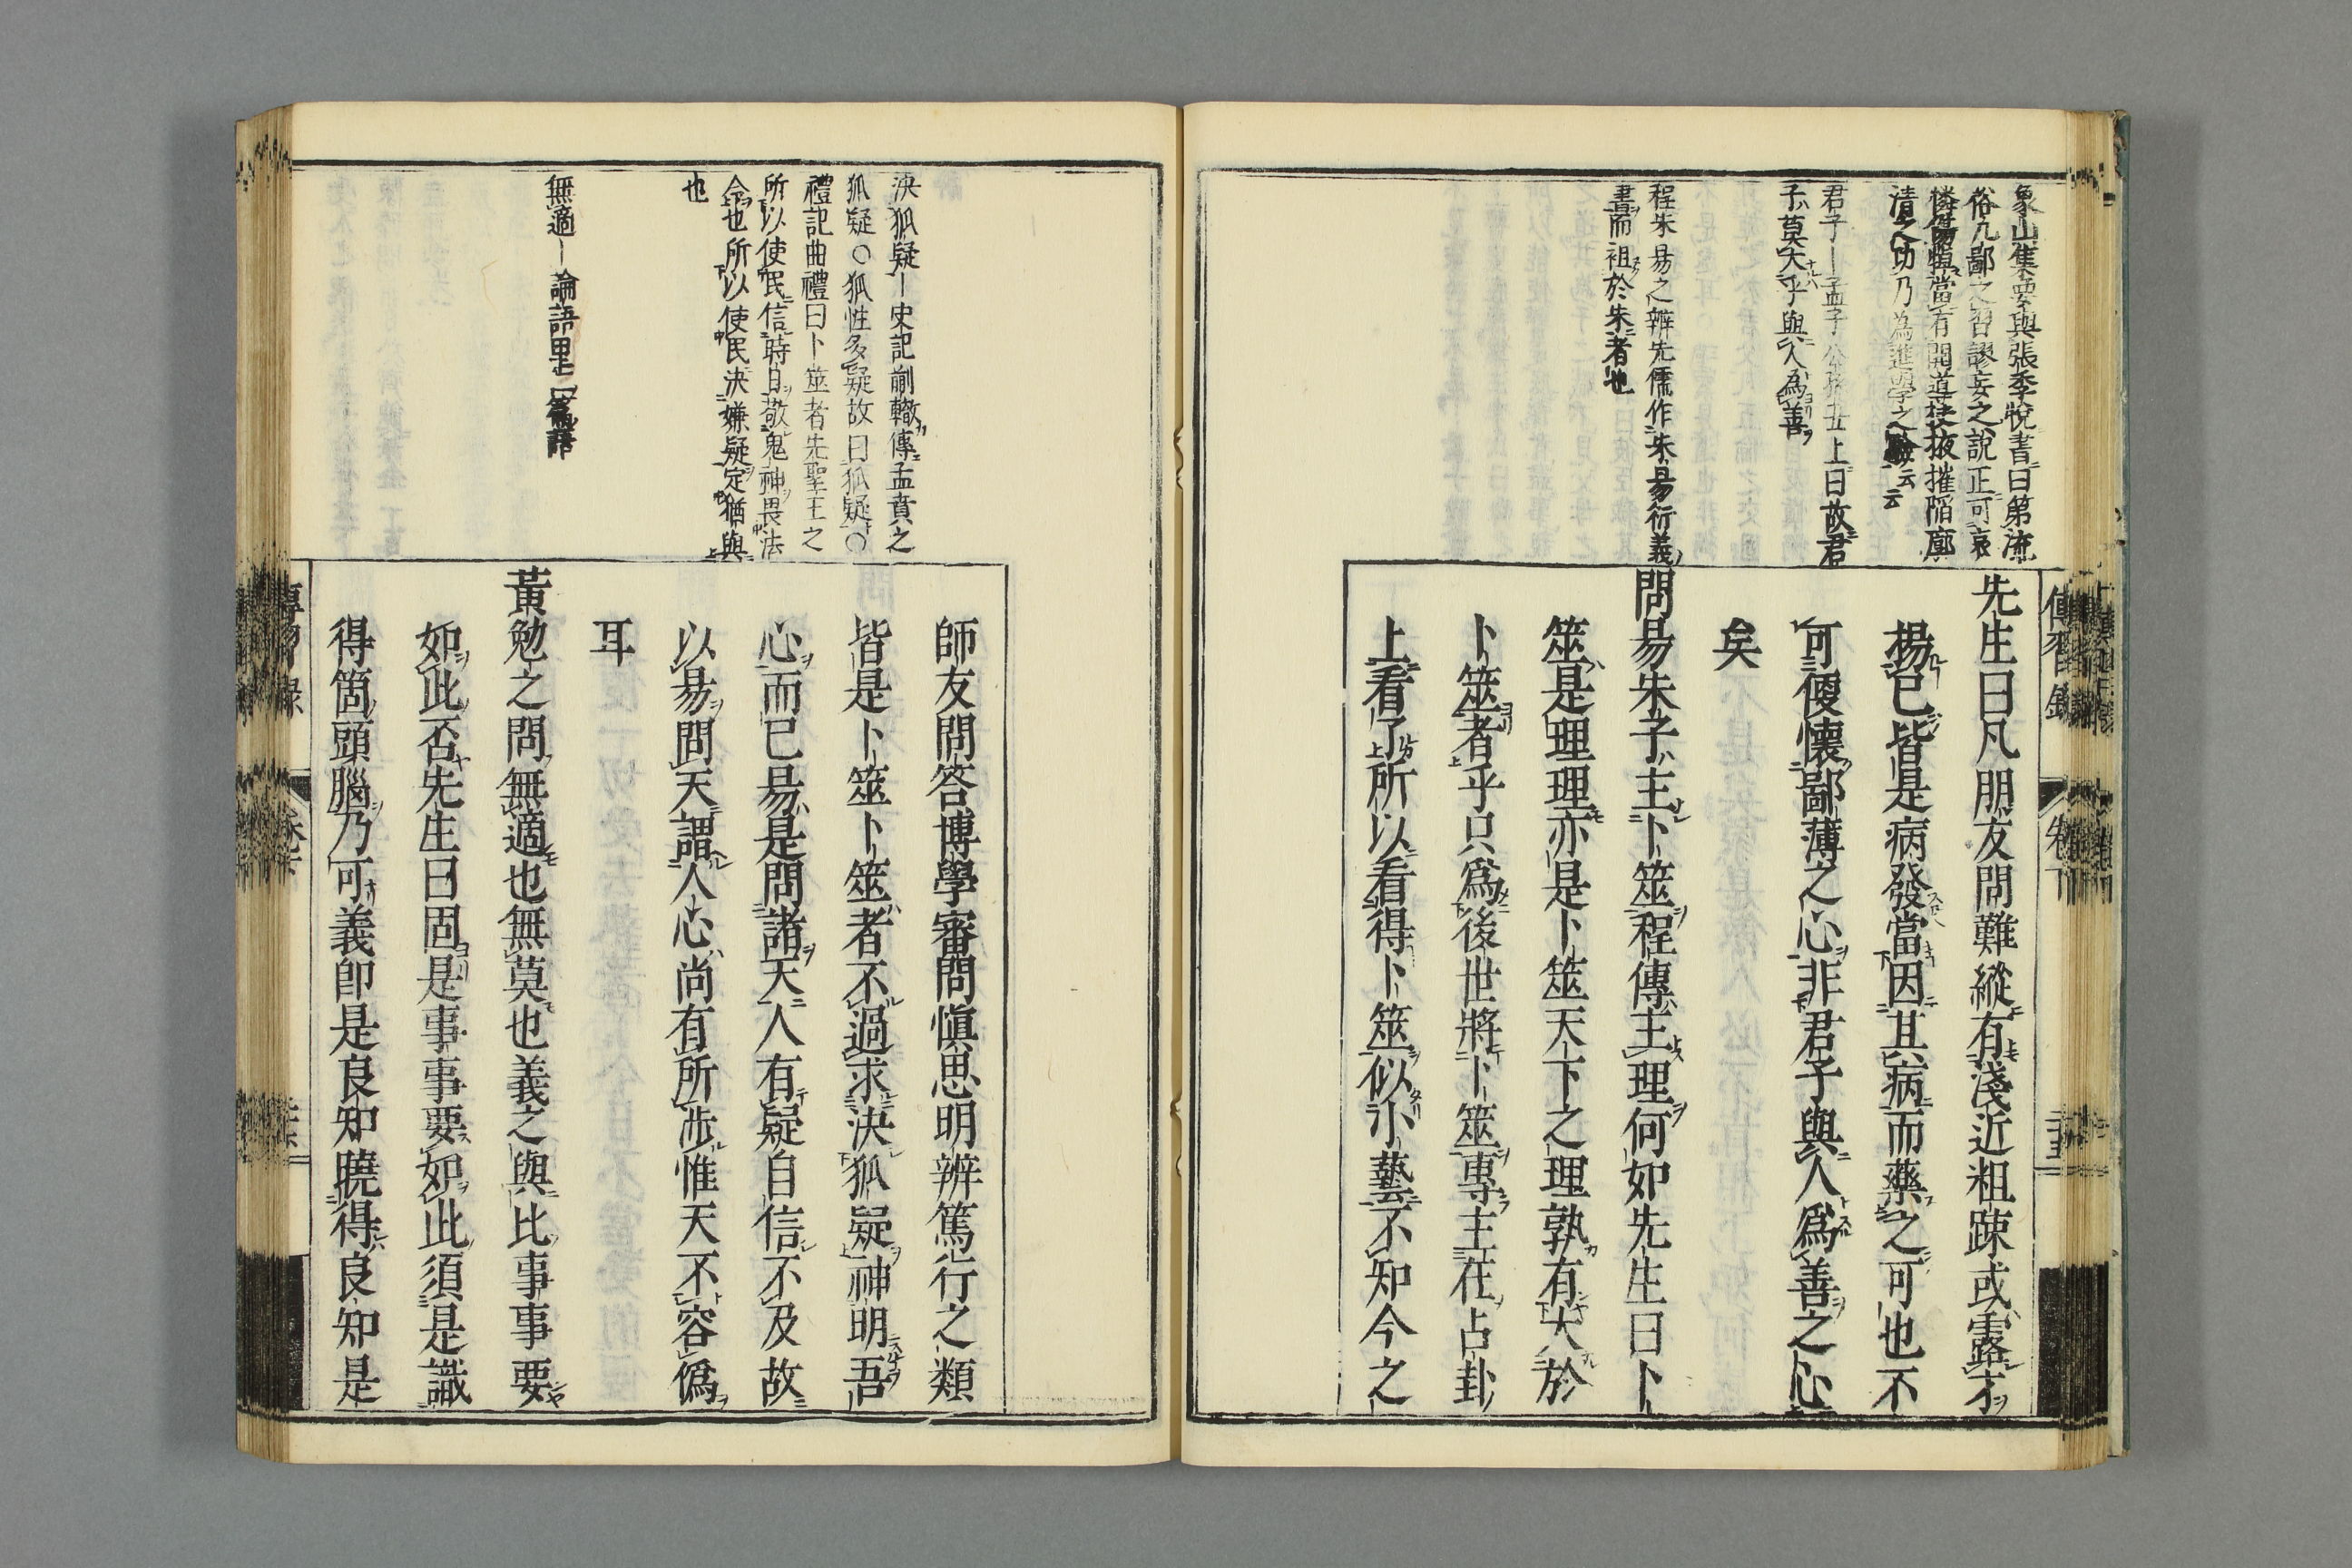 象山集要與張季悅書曰第流
俗凡鄙之習謬妄之說正可哀
憐傷愼當有開導扶掖摧陷廓
清之功乃為進學之驗云云
君子ー孟子公孫丑上曰故君
子莫大乎與人為善
程朱易之辨先儒作朱易衍義
書而祖於朱者也
先生曰凡朋友問難縱有淺近粗疎或露才
揚已皆是病發當因其病而藥之可也不
可便懷鄙薄之心非君子與人爲善之心
矣
問易朱子主卜筮程傳主理何如先生曰卜
筮是理理亦是卜筮天下之理孰有大於
卜筮者乎只爲後世將卜筮專主在占卦
上看了所以看得卜筮似小藝不知今之
傳習錄
卷下
二十五
決狐疑ー史記蒯轍傳孟賁之
狐疑〇狐性多疑故曰狐疑〇
禮記曲禮曰卜筮者先聖王之
所以使民信時日敬鬼神畏法
令也所以使民決嫌疑定猶與
也
無適ー論語里仁篇語
師友問答博學審問愼思明辨篤行之類
皆是卜筮卜筮者不過求決狐疑神明吾
心而已易是問諸天人有疑自信不及故
以易問天謂人心尚有所涉惟天不容僞
耳
黃勉之問無適也無莫也義之與比事事要
如此否先生曰固是事事要如此須是識
得箇頭腦乃可義卽是良知曉得良知是